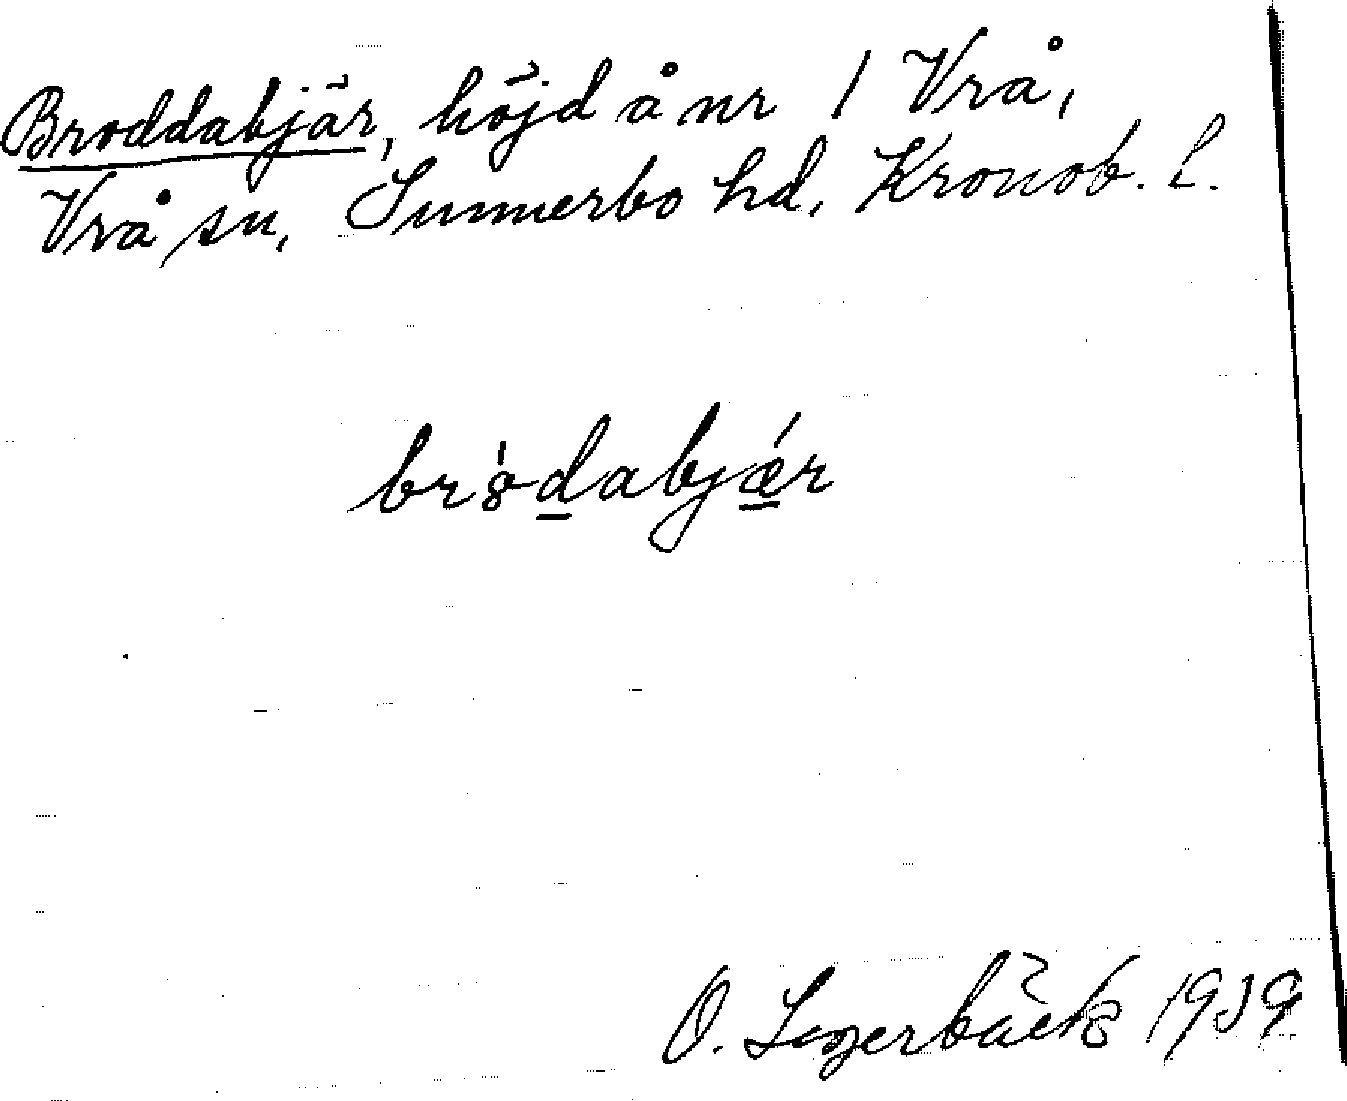 Broddabjär, höjd å nr 1 Vrå,
Vrå sn, Sunnerbo hd, Kronob. l.
bródabjǽr
O. 1939